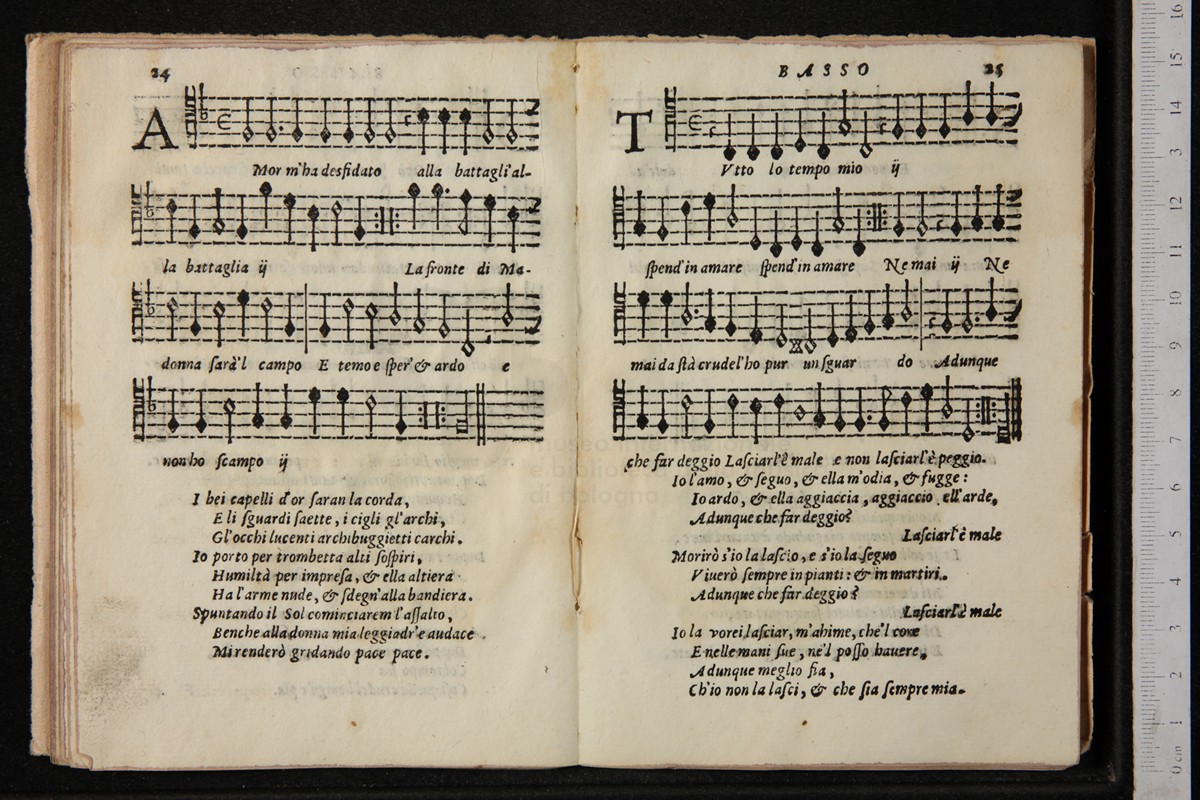 24
A
Mor m'ha desfidato alla battagli'al-
la battaglia ij La fronte di Ma-
donna sarà'l campo E temo e sper' & ardo e
non ho scampo ij
I bei capelli d'or saran la corda,
E li sguardi saette, i cigli gl'archi,
Gl'occhi lucenti archibuggietti carchi.
Io porto per trombetta alti sospiri,
Humiltà per impresa, & ella altiera
Ha l'arme nude, & sdegn'alla bandiera.
Spuntando il Sol cominciarem l'assalto,
Benche alla donna mia leggiadr'e audace
Mi renderò gridando pace pace.
BASSO 25
T
Vtto lo tempo mio ij
spend'in amare spend'in amare Ne mai ij Ne
mai da stà crudel'ho pur un sguar do Adunque
che far deggio Lasciarl'è male e non lasciarl'è peggio.
Io l'amo, & seguo, & ella m'odia, & fugge:
Io ardo, & ella aggiaccia, aggiaccio ell'arde,
Adunque che far deggio?
Lasciarl'è male
Morirò s'io la lascio, e s'io la seguo
Viuerò sempre in pianti: & in martiri.
Adunque che far deggio?
Lasciarl'è male
Io la vorei lasciar, m'ahime, che'l core
E nelle mani sue, nè'l posso hauere,
Adunque meglio fia,
Ch'io non la lasci, & che sia sempre mia.
museo
e biblio
di bologna
0 cm 1 2 3 4 5 6 7 8 9 10 11 12 13 14 15 16